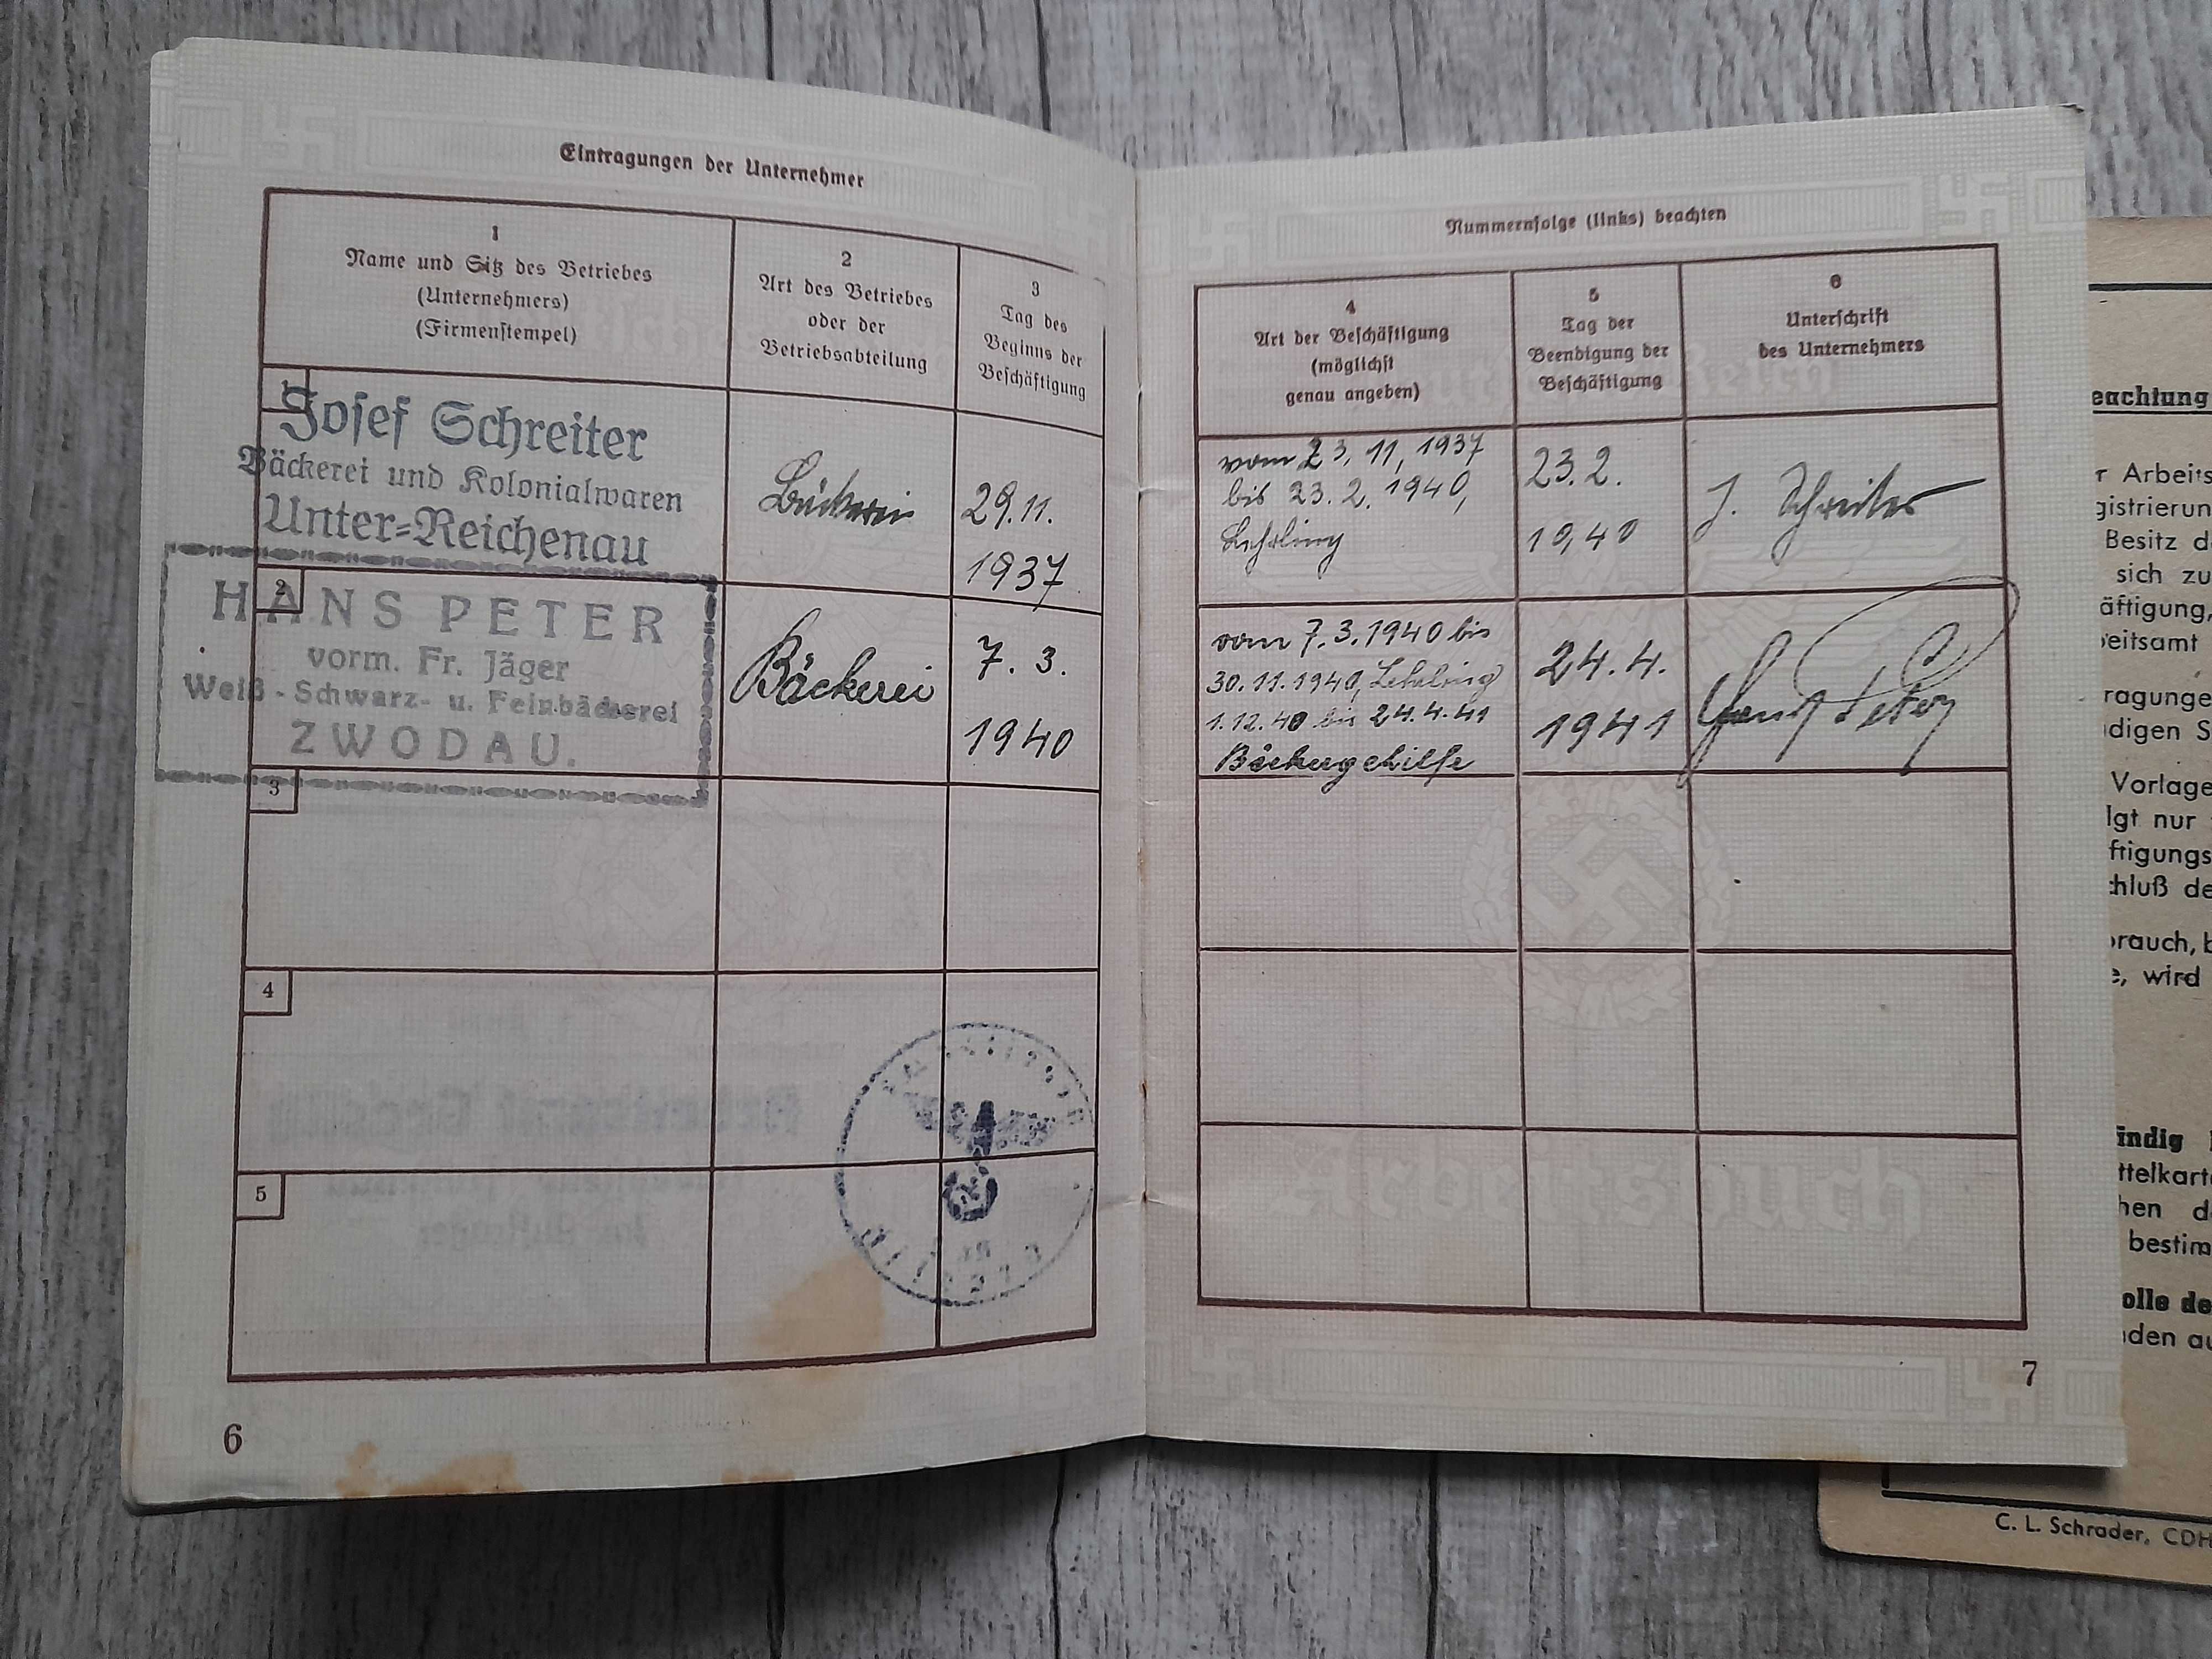 Eintragungen der Unternehmer
1
Name und Sitz des Betriebes
(Unternehmers)
(Firmenstempel)
2
Art des Betriebes
oder der
Betriebsabteilung
3
Tag des
Beginns der
Beschäftigung
1
Josef Schreiter
Bäckerei und Kolonialwaren
Unter-Reichenau
Bäckerei
29.11.
1937
2
HANS PETER
vorm. Fr. Jäger
Weiß-Schwarz- u. Feinbäckerei
ZWODAU.
Bäckerei
7. 3.
1940
3
4
5
6
Nummernfolge (links) beachten
4
Art der Beschäftigung
(möglichst
genau angeben)
5
Tag der
Beendigung der
Beschäftigung
6
Unterschrift
des Unternehmers
vom 23. 11, 1937
bis 23. 2. 1940,
Lehrling
23.2.
1940
J. Schreiter
vom 7.3.1940 bis
30.11.1940, Lehrling
1.12.40 bis 24.4.41
Bäckergehilfe
24.4.
1941
Hans Peter
7
eachtung
r Arbeits
gistrierun
Besitz d
sich zu
äftigung,
eitsamt
ragunge
digen S
Vorlage
lgt nur
ftigungs
chluß de
brauch, b
e, wird
ändig
ttelkart
hen d
bestim
olle de
den au
C. L. Schrader, CDH